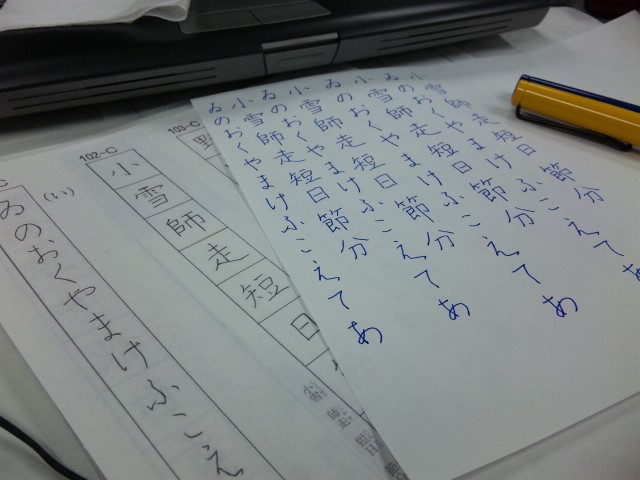 小雪師走短日節分
ゐのおくやまけふこえてあ
小雪師走短日節分
ゐのおくやまけふこえてあ
小雪師走短日節分
ゐのおくやまけふこえてあ
小雪師走短日節分
ゐのおくやまけふこえてあ
103-C
野
102-C
小雪師走短日
小雪
師走
短日
(い)
ゐのおくやまけふこえ